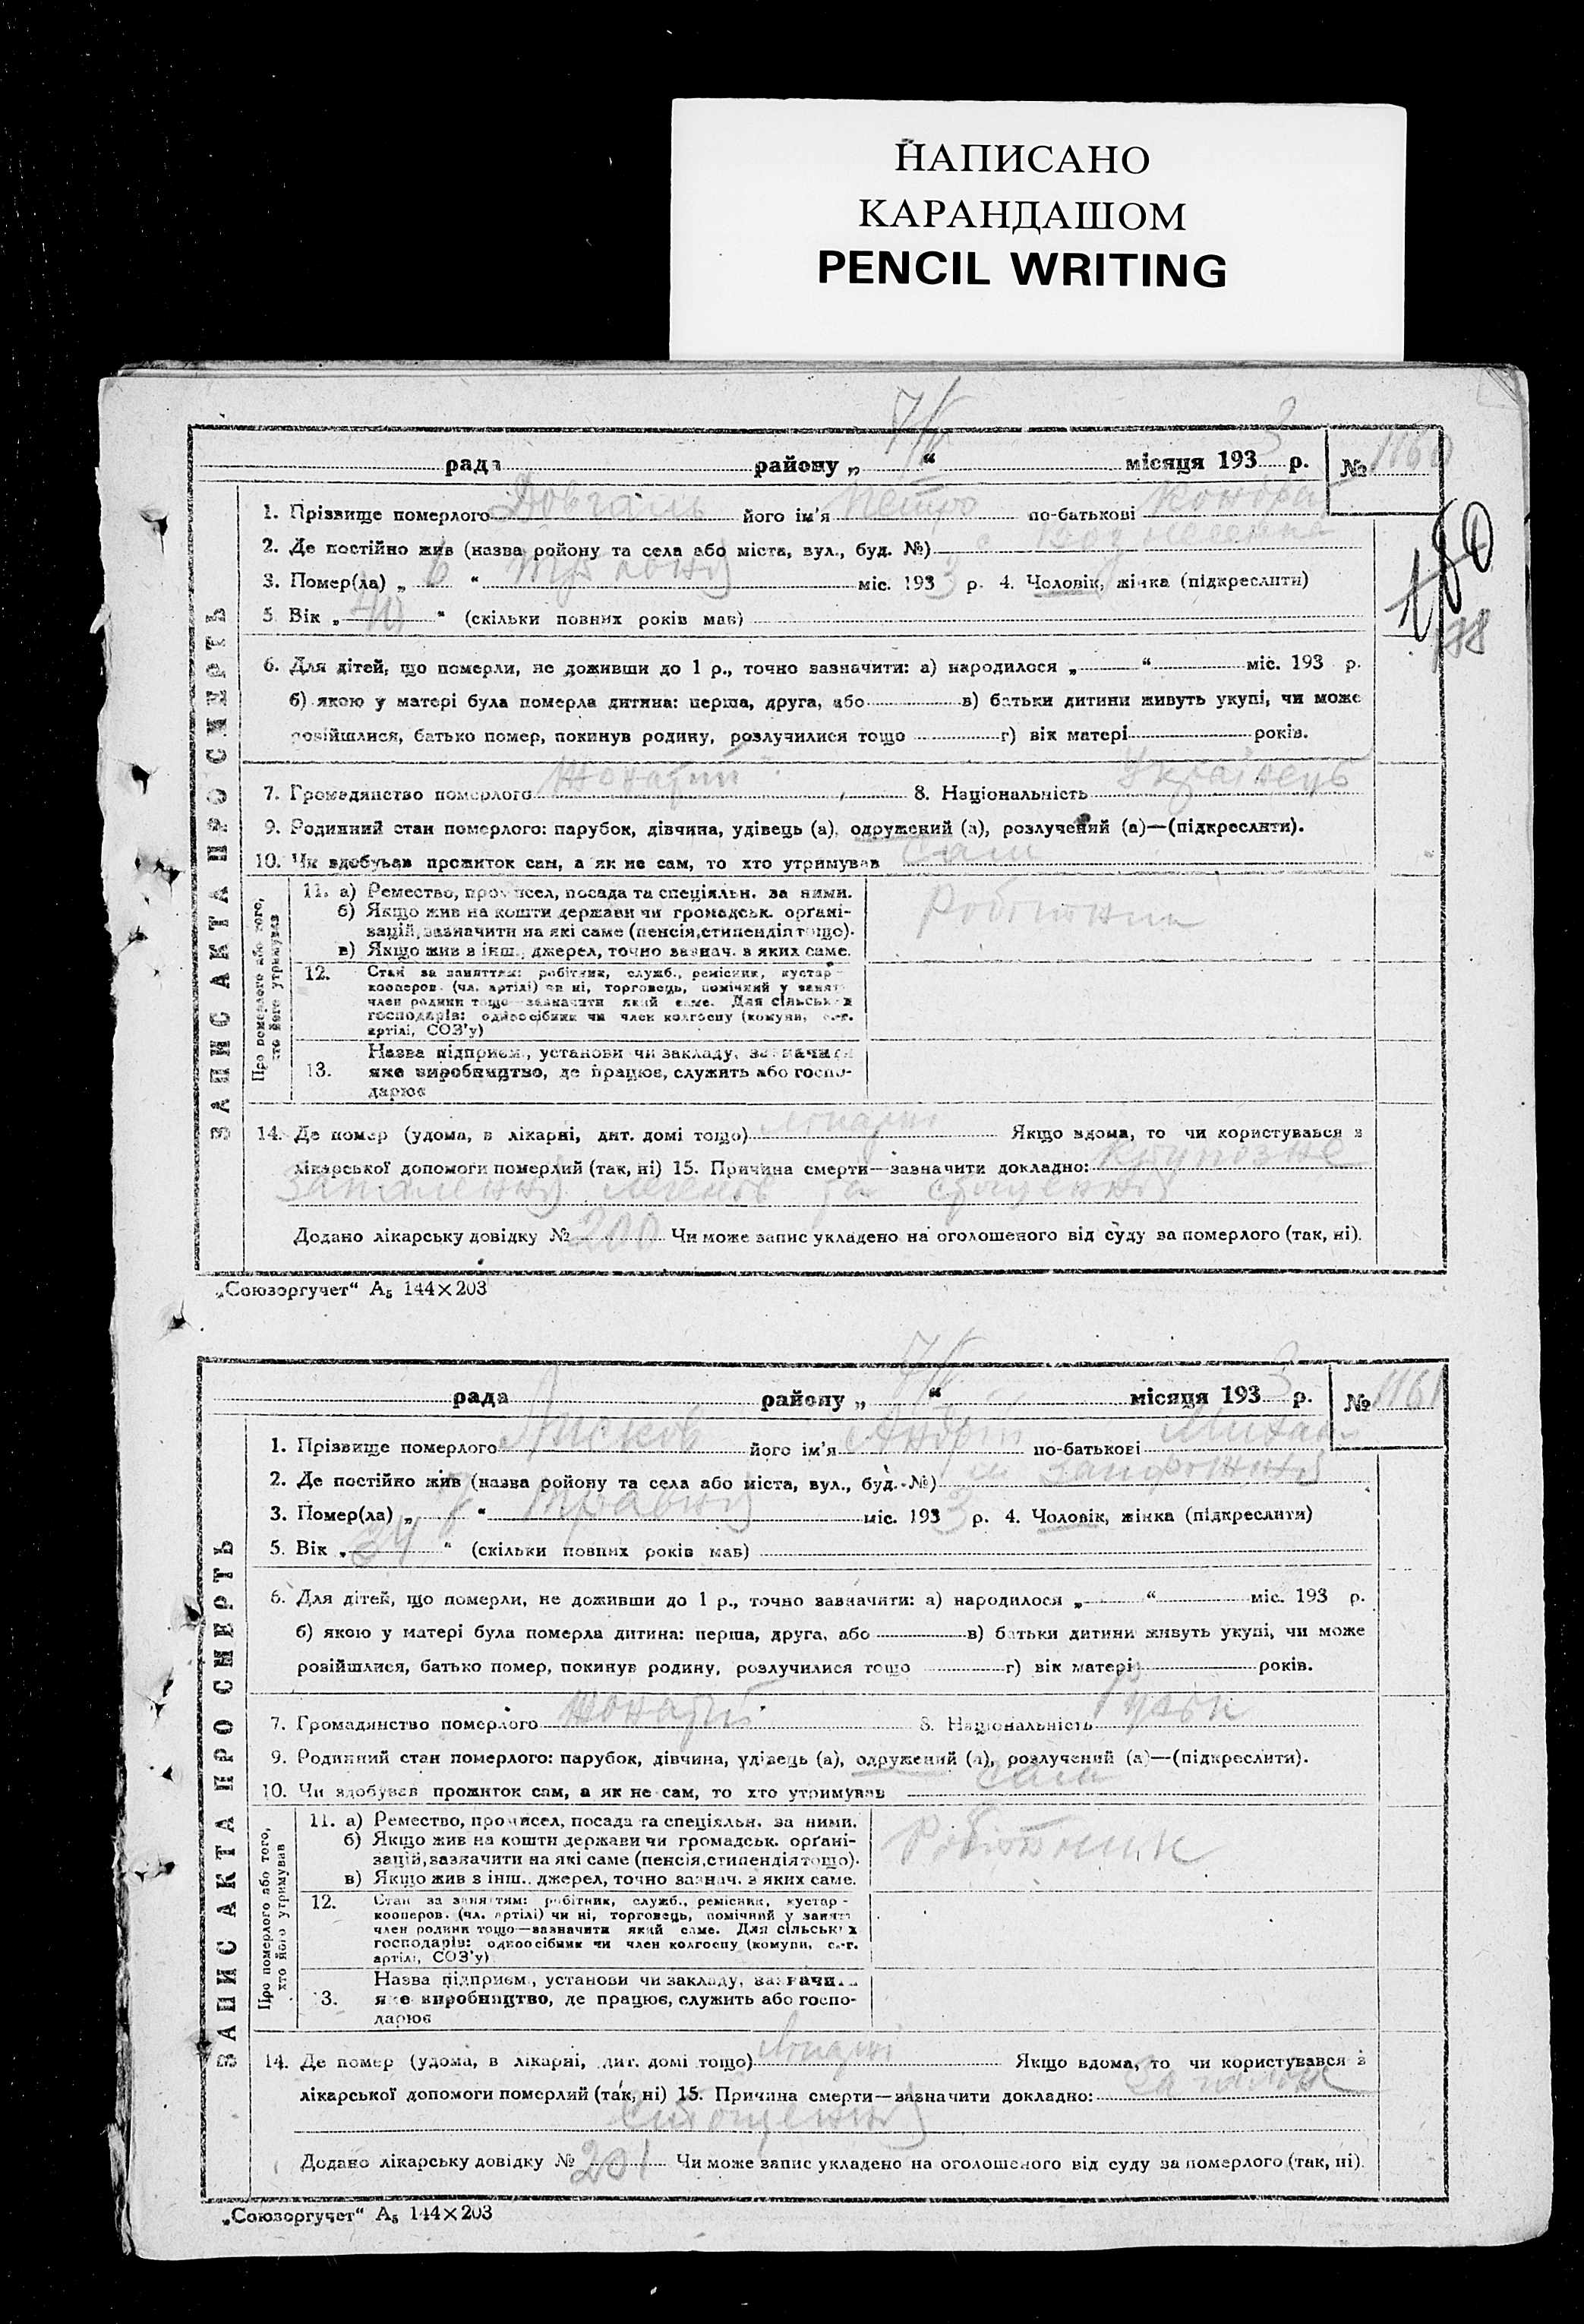 НАПИСАНО
КАРАНДАШОМ
PENCIL WRITING
7/V 3
рада району „ “ місяця 193 р. № 1160
1. Прізвище померлого Довгаль його ім'я Петро по-батькові Кондра
2. Де постійно жив (назва ройону та села або міста, вул., буд. №) с Вознесенка
3. Помер(ла) „ 6 “ Травня міс. 193 3 р. 4. Чоловік, жінка (підкреслити)
5 Вік „ 40 “ (скільки повних років мав)
180
178
6. Для дітей, що померли, не доживши до 1 р., точно зазначити: а) народилося „ “ міс. 193 р.
б) якою у матері була померла дитина: перша, друга, або в) батьки дитини живуть укупі, чи може
розійшлися, батько помер, покинув родину, розлучилися тощо г) вік матері років.
7. Громадянство померлого Жонатий 8. Національність Українець
9. Родинний стан померлого: парубок, дівчина, удівець (а), одружений (а), розлучений (а)—(підкреслити).
10. Чи здобував прожиток сам, а як не сам, то хто утримував сам
ЗАПИС АКТА ПРО СМЕРТЬ
Про померлого або того,
хто його утримував
11. а) Ремество, промисел, посада та спеціяльн. за ними.
б) Якщо жив на кошти держави чи громадськ. орґані-
зацій, зазначити на які саме (пенсія, стипендія тощо).
в) Якщо жив з інш., джерел, точно зазнач. з яких саме.
Роботник
12. Стан за заняттям: робітник, служб., ремісник, кустар-
кооперов. (чл. артілі) чи ні, торговець, помічний у занят
член родини тощо—зазначити який саме. Для сільськ х
господарів: одноосібник чи член колгоспу (комуни, с.-г.
артілі, СОЗ'у)
13. Назва підприєм., установи чи закладу, зазначити
яке виробництво, де працює, служить або госпо-
дарює
14. Де помер (удома, в лікарні, дит. домі тощо) Якщо вдома, то чи користувався з
лікарської допомоги померлий (так, ні) 15. Причина смерти—зазначити докладно: Крупозне
запалення легенів та стощення
Додано лікарську довідку № 200 Чи може запис укладено на оголошеного від суду за померлого (так, ні).
„Союзоргучет“ А₅ 144×203
7/V 3
рада району „ “ місяця 193 р. № 1161
1. Прізвище померлого його ім'я Андрій по-батькові Михай
2. Де постійно жив (назва ройону та села або міста, вул., буд. №) м Запоріжжя
3. Помер(ла) „ 7 “ Травня міс. 193 3 р. 4. Чоловік, жінка (підкреслити)
5. Вік „ 34 “ (скільки повних років мав)
6. Для дітей, що померли, не доживши до 1 р., точно зазначити: а) народилося „ “ міс. 193 р.
б) якою у матері була померла дитина: перша, друга, або в) батьки дитини живуть укупі, чи може
розійшлися, батько помер, покинув родину, розлучилися тощо г) вік матері років.
7. Громадянство померлого Жонатий 8. Національність
9. Родинний стан померлого: парубок, дівчина, удівець (а), одружений (а), розлучений (а)—(підкреслити).
10. Чи здобував прожиток сам, а як не сам, то хто утримував сам
ЗАПИС АКТА ПРО СМЕРТЬ
Про померлого або того,
хто його утримував
11. а) Ремество, промисел, посада та спеціяльн. за ними.
б) Якщо жив на кошти держави чи громадськ. орґані-
зацій, зазначити на які саме (пенсія, стипендія тощо).
в) Якщо жив з інш., джерел, точно зазнач. з яких саме.
Робітник
12. Стан за заняттям: робітник, служб., ремісник, кустар-
кооперов. (чл. артілі) чи ні, торговець, помічний у занят
член родини тощо—зазначити який саме. Для сільськ х
господарів: одноосібник чи член колгоспу (комуни, с.-г.
артілі, СОЗ'у)
13. Назва підприєм., установи чи закладу, зазначити
яке виробництво, де працює, служить або госпо-
дарює
14. Де помер (удома, в лікарні, дит. домі тощо) Якщо вдома, то чи користувався з
лікарської допомоги померлий (так, ні) 15. Причина смерти—зазначити докладно:
стощення
Додано лікарську довідку № 201 Чи може запис укладено на оголошеного від суду за померлого (так, ні)
„Союзоргучет“ А₅ 144×203